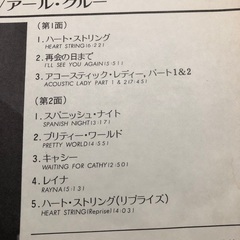 ／アール・クルー
（第1面）
1. ハート・ストリング
HEART STRING(6:23)
2. 再会の日まで
I'LL SEE YOU AGAIN(5:31)
3. アコースティック・レディー，パート1&2
ACOUSTIC LADY PART 1 & 2(7:21)
（第2面）
1. スパニッシュ・ナイト
SPANISH NIGHT(5:17)
2. プリティー・ワールド
PRETTY WORLD(4:55)
3. キャシー
WAITING FOR CATHY(2:50)
4. レイナ
RAYNA(5:13)
5. ハート・ストリング(リプライズ)
HEART STRING(Reprise)(4:03)